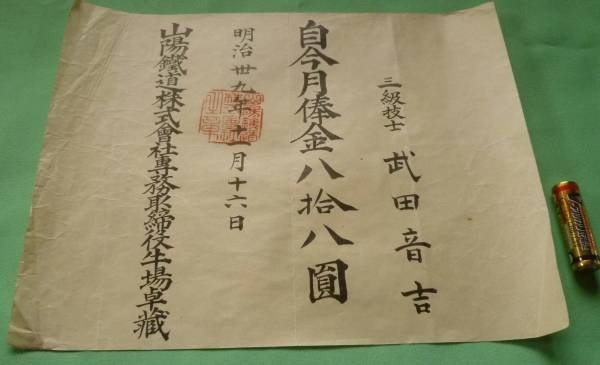 三級技士 武田音吉
自今月俸金八拾八圓
明治卅九年十一月十六日
山陽鐵道株式會社專務取締役牛場卓藏